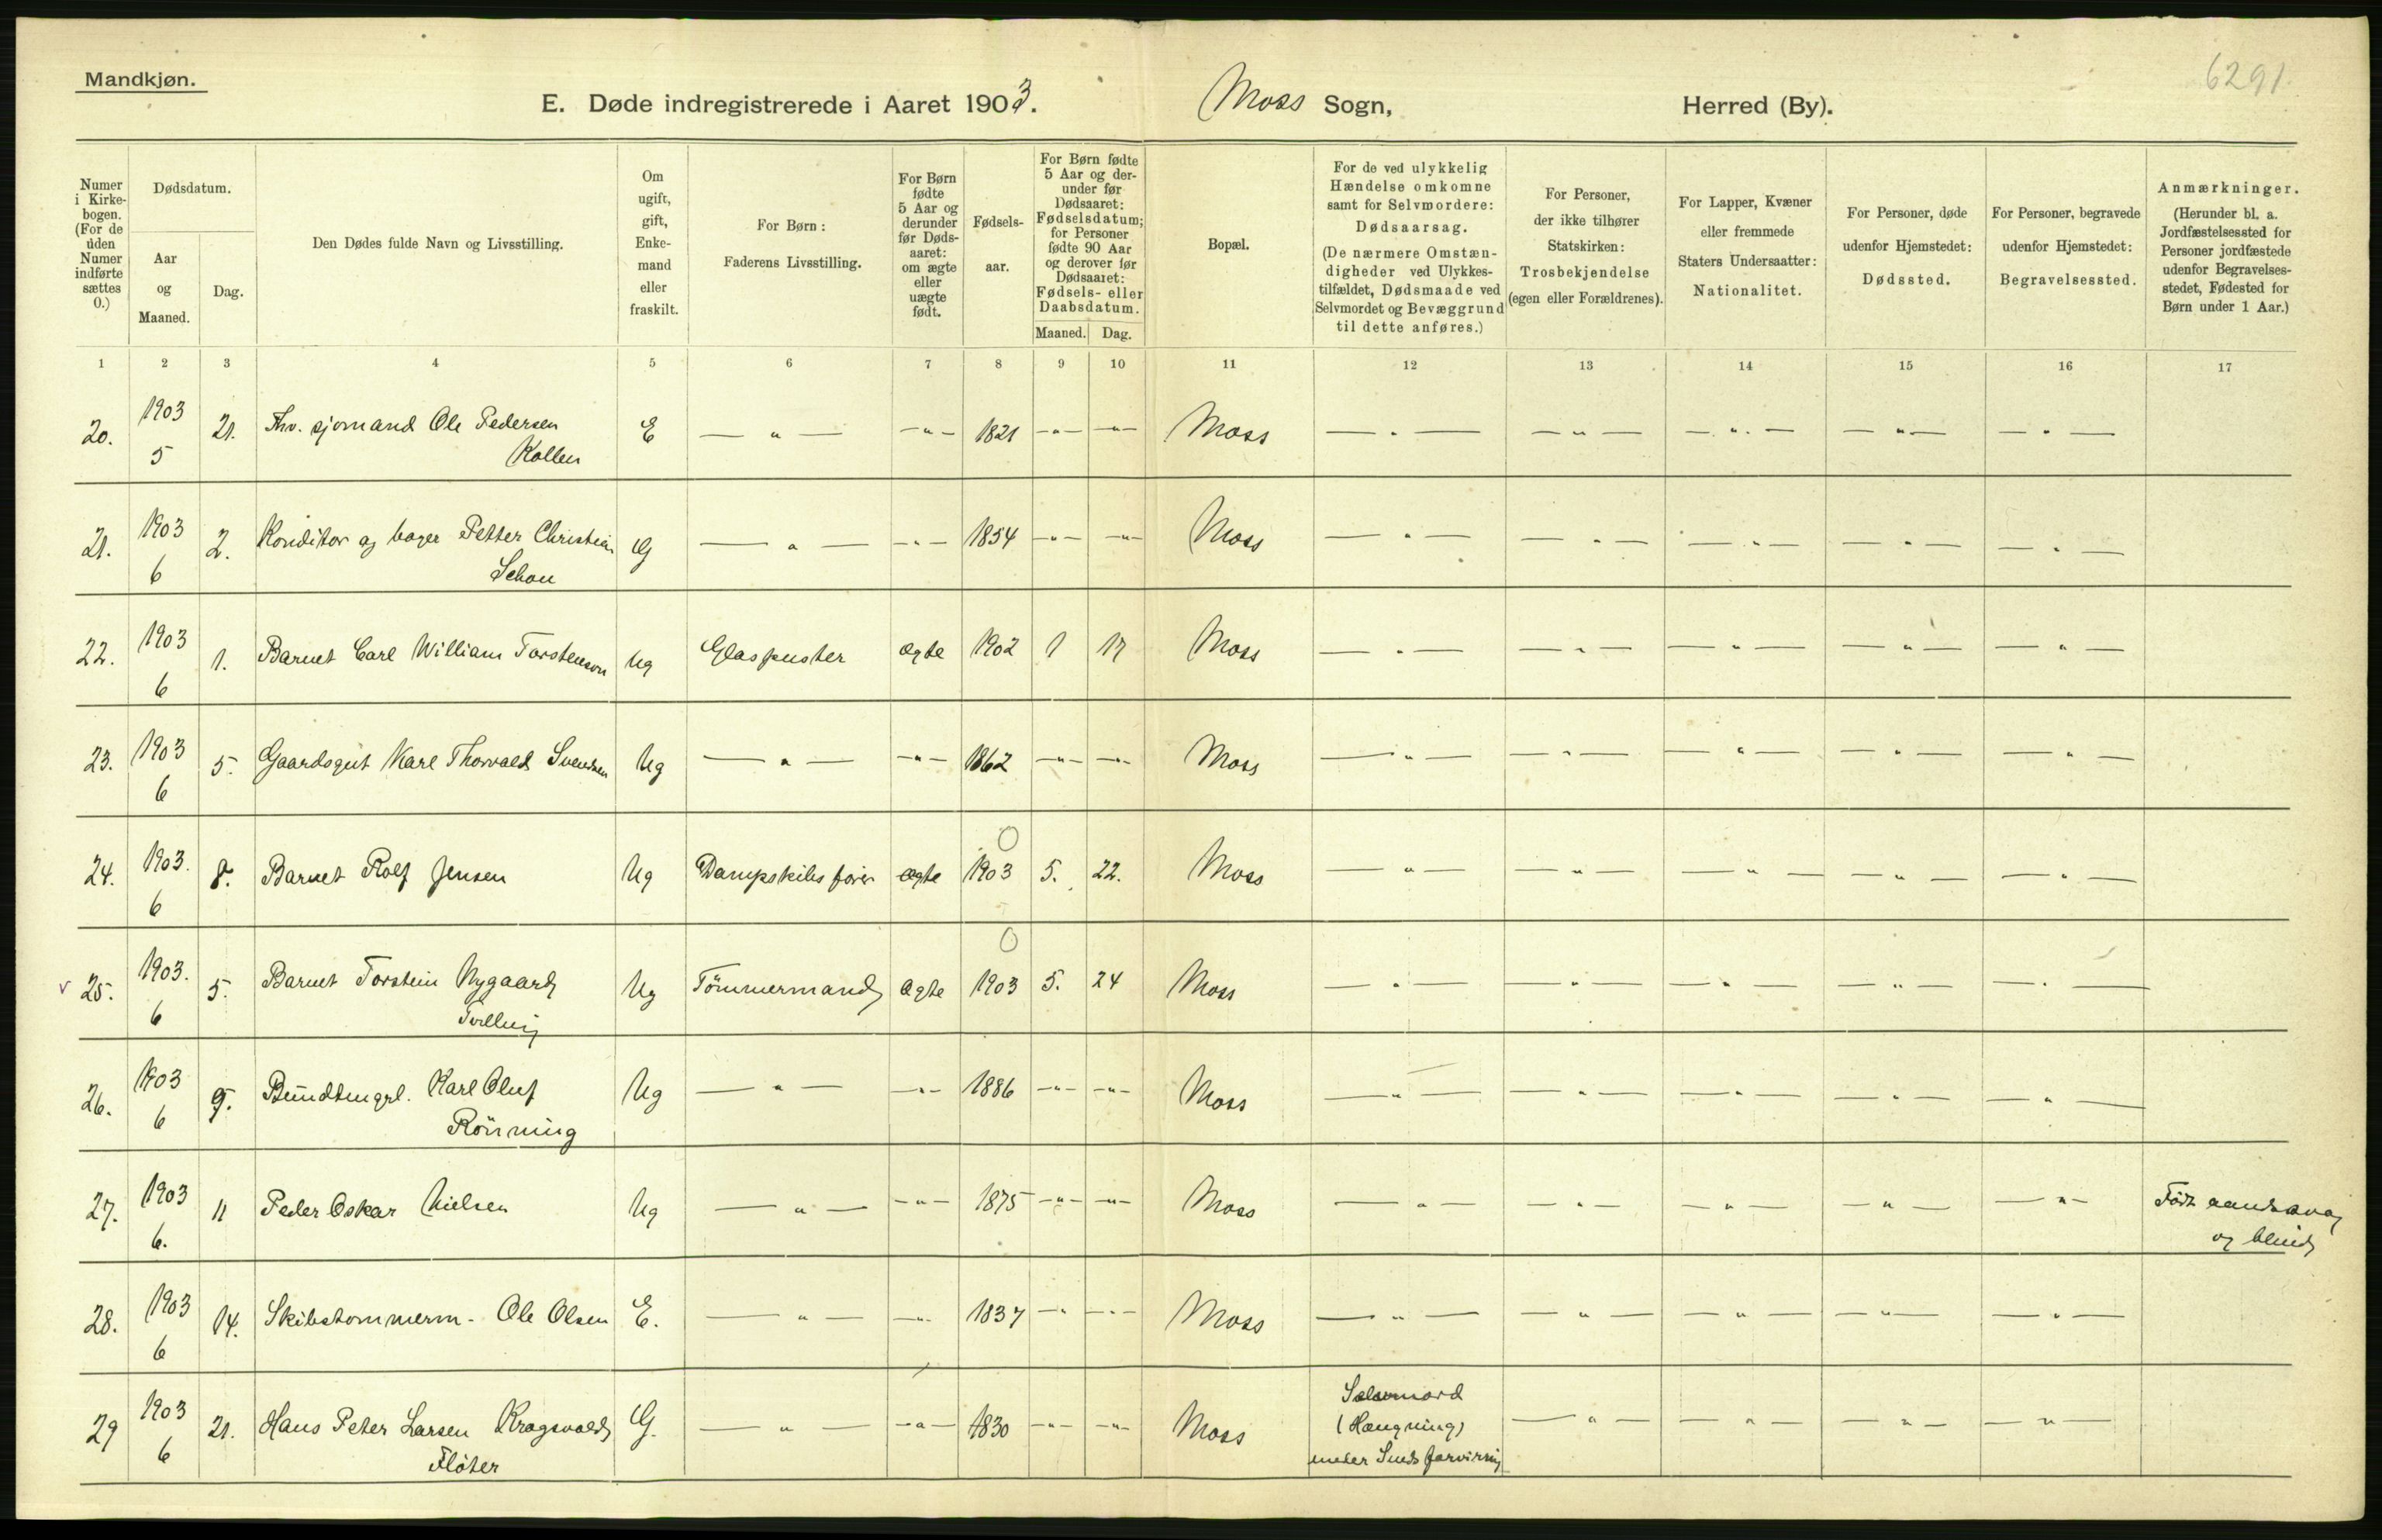 Mandkjøn.
6291.
E. Døde indregistrerede i Aaret 1903. Moss Sogn, Herred (By).
Numer i Kirke-bogen. (For de uden Numer indførte sættes 0.)
Dødsdatum.
Aar og Maaned.
Dag.
Den Dødes fulde Navn og Livsstilling.
Om ugift, gift, Enke-mand eller fraskilt.
For Børn: Faderens Livsstilling.
For Børn fødte 5 Aar og derunder før Døds-aaret: om ægte eller uægte født.
Fødsels-aar.
For Børn fødte 5 Aar og der-under før Dødsaaret: Fødselsdatum; for Personer fødte 90 Aar og derover før Dødsaaret: Fødsels- eller Daabsdatum.
Maaned. Dag.
Bopæl.
For de ved ulykkelig Hændelse omkomne samt for Selvmordere: Dødsaarsag. (De nærmere Omstæn-digheder ved Ulykkes-tilfældet, Dødsmaade ved Selvmordet og Bevæggrund til dette anføres.)
For Personer, der ikke tilhører Statskirken: Trosbekjendelse (egen eller Forældrenes).
For Lapper, Kvæner eller fremmede Staters Undersaatter: Nationalitet.
For Personer, døde udenfor Hjemstedet: Dødssted.
For Personer, begravede udenfor Hjemstedet: Begravelsessted.
Anmærkninger. (Herunder bl. a. Jordfæstelsessted for Personer jordfæstede udenfor Begravelses-stedet, Fødested for Børn under 1 Aar.)
1 2 3 4 5 6 7 8 9 10 11 12 13 14 15 16 17
20. 1903 5 21. Fhv. sjømand Ole Pedersen E — " — — " — 1821 — " — — " — Moss — " — — " — — " — — " — — " —
Kollen
21. 1903 6 2. Konditor og bager Petter Christian G — " — — " — 1854 — " — — " — Moss — " — — " — — " — — " — — " —
Schou
22. 1903 6 1. Barnet Carl William Torstenson Ug Glaspuster ægte 1902 1 17 Moss — " — — " — — " — — " — — " —
23. 1903 6 5. Gaardsgut Karl Thorvald Svendsen Ug — " — — " — 1862 — " — — " — Moss — " — — " — — " — — " — — " —
0
24. 1903. 6 8. Barnet Rolf Jensen Ug Dampskibsfører ægte 1903 5. 22. Moss — " — — " — — " — — " — — " —
0
v 25. 1903. 6 5. Barnet Torstein Nygaard Ug Tömmermand ægte 1903 5. 24 Moss — " — — " — — " — — " — — " —
Tvilling
26. 1903 6 9. Bundtmgrl. Karl Oluf Ug — " — — " — 1886 — " — — " — Moss — " — — " — — " — — " — — " —
Rönning
27. 1903 6. 11 Peder Oskar Nielsen Ug — " — — " — 1875 — " — — " — Moss — " — — " — — " — — " — — " — Födt aandssvag
og blind
28. 1903 6 14. Skibstommerm. Ole Olsen E. — " — — " — 1837 — " — — " — Moss — " — — " — — " — — " — — " —
29 1903 6 21. Hans Peter Larsen Kragsvold G. — " — — " — 1830 — " — — " — Moss Selvmord — " — — " — — " — — " —
Fløter (Hængning)
under Sindsforvirring